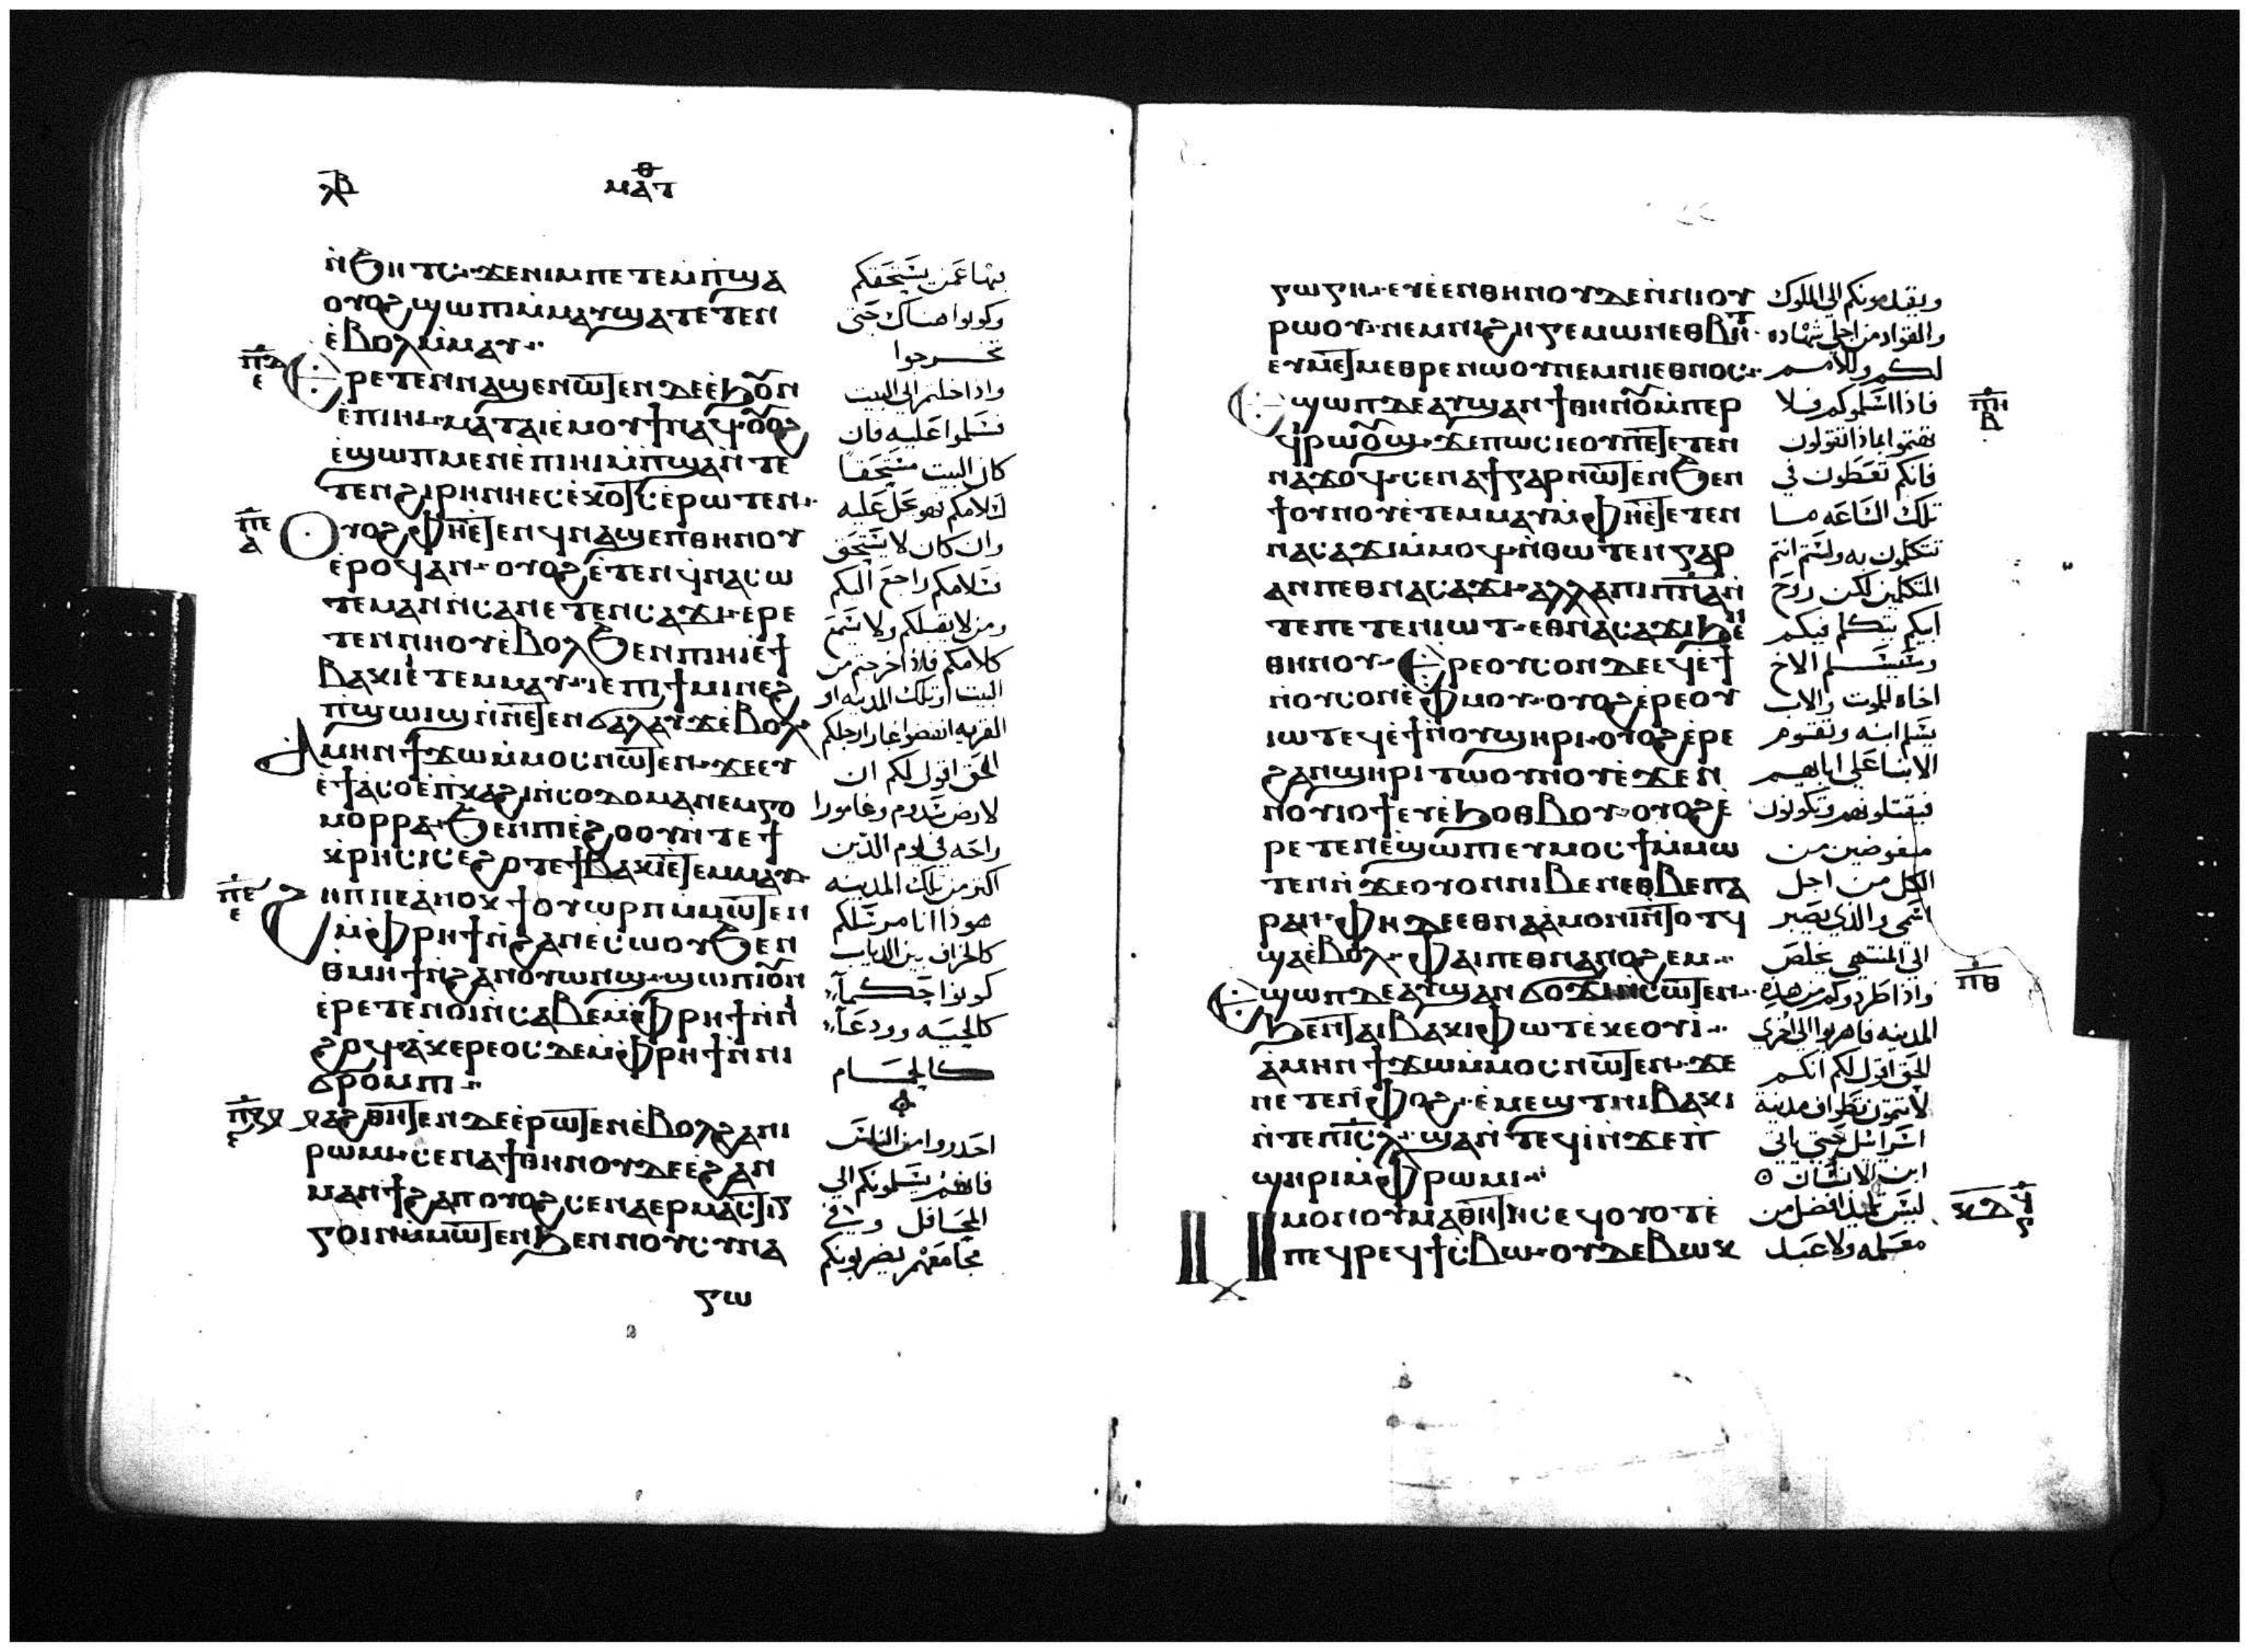 ⲗⲃ
ⲙⲁⲧⲑ
ⲛ̀ϧⲏⲧⲥ· ϫⲉⲛⲓⲙⲡⲉⲧⲉⲙⲡ̀ϣⲁ
ⲟⲩⲟϩϣⲱⲡⲓⲙ̀ⲙⲁⲩϣⲁⲧⲉⲧⲉⲛ
ⲉ̀ⲃⲟⲗⲙ̀ⲙⲁⲩ··
ⲡ̅ⲇ̅
ⲉ
Ⲉⲣⲉⲧⲉⲛⲛⲁϣⲉⲛⲱⲧⲉⲛⲇⲉⲉ̀ϧⲟⲩⲛ
ⲉ̀ⲡⲓⲏⲓ· ⲙⲁⲧⲁⲓⲉ̀ⲙⲟⲩϯⲛⲁϥ· ⲟⲩⲟϩ
ⲉ̀ϣⲱⲡⲙⲉⲛⲉ̀ⲡⲓⲏⲓⲙ̀ⲡϣⲁⲛ̀ⲧⲉ
ⲧⲉⲛϩⲓⲣⲏⲛⲏⲉⲥⲉ̀ⲭⲟⲧⲥⲉ̀ⲣⲱⲧⲉⲛ··
ⲡ̅ⲉ̅
ⲁ
Ⲟⲩⲟϩⲫⲏⲉ̀ⲧⲉⲛϥⲛⲁϣⲉⲡⲑⲏⲛⲟⲩ
ⲉ̀ⲣⲟϥⲁⲛ·· ⲟⲩⲟϩⲉ̀ⲧⲉⲛϥ̀ⲛⲁⲥⲱ
ⲧⲉⲙⲁⲛⲛ̀ⲥⲁⲛⲉⲧⲉⲛⲥⲁϫⲓ· ⲉⲣⲉ
ⲧⲉⲛⲛⲏⲟⲩⲉ̀ⲃⲟⲗϧⲉⲛⲡⲓⲏⲓⲓⲉϯ
ⲃⲁⲕⲓⲉ̀ⲧⲉⲙⲙⲁⲩ·· ⲓⲉⲡⲓϯⲙⲓⲛⲉϩ
ⲡϣⲱⲓϣⲛ̀ⲛⲉⲧⲉⲛϭⲁⲗⲁⲩϫⲉ̀ⲃⲟⲗ
Ⲁⲙⲏⲛϯϫⲱⲙ̀ⲙⲟⲥⲛⲱⲧⲉⲛ·· ϫⲉⲉⲩ
ⲉ̀ϯⲁⲥⲟⲉ̀ⲡⲕⲁϩⲓⲛ̀ⲥⲟⲇⲟⲙⲁⲛⲉⲙⲅⲟ
ⲙⲟⲣⲣⲁ· ϧⲉⲛⲡⲓⲉ̀ϩⲟⲟⲩⲛ̀ⲧⲉϯ
ⲕ̀ⲣⲏⲥⲓⲥⲉϩⲟⲧⲉϯⲃⲁⲕⲓⲉ̀ⲧⲉⲙⲙⲁⲩ·
ⲡ̅ⲉ̅
ⲉ
Ϩⲏⲡⲡⲉⲁ̀ⲛⲟⲕϯⲟⲩⲱⲣⲡⲙ̀ⲙⲱⲧⲉⲛ
ⲙ̀ⲫⲣⲏϯⲛ̀ϩⲁⲛⲉ̀ⲥⲱⲟⲩϧⲉⲛ
ⲑ̀ⲙⲏϯⲛ̀ϩⲁⲛⲟⲩⲱⲛϣ· ϣⲱⲡⲓⲟⲩⲛ
ⲉ̀ⲣⲉⲧⲉⲛⲟⲓⲛ̀ⲥⲁⲃⲉⲙ̀ⲫⲣⲏϯⲛ̀ⲛⲓ
ϩⲟϥ· ⲁ̀ⲕⲉⲣⲉⲟⲥⲇⲉⲙ̀ⲫⲣⲏϯⲛ̀ⲛⲓ
ϭⲣⲟⲙⲡⲓ··
ⲡ̅ⲍ̅
ⲉ
Ⲙⲁϩⲑⲏⲧⲉⲛⲇⲉⲉ̀ⲣⲱⲧⲉⲛⲉ̀ⲃⲟⲗϩⲁⲛⲓ
ⲣⲱⲙⲓ· ⲥⲉⲛⲁϯⲑⲏⲛⲟⲩⲇⲉⲉ̀ϩⲁⲛ
ⲙⲁⲛϯϩⲁⲡⲟⲩⲟϩⲥⲉⲛⲁⲉⲣⲙⲁⲥⲧⲓⲅ
ⲅⲟⲓⲛⲙ̀ⲙⲱⲧⲉⲛϧⲉⲛⲛⲟⲩⲥⲩⲛⲁ
ⲅⲱ
بها عمن يستحقكم
وكونوا هناك حتى
تخرجوا
واذا دخلتم الى البيت
فسلموا عليه فان
كان البيت مستحقا
لسلامكم فهو يحل عليه
وان كان لا يستحق
فسلامكم راجع اليكم
ومن لا يقبلكم ولا يسمع
كلامكم فاذا خرجتم من
البيت او تلك المدينه او
القريه انفضوا غبار ارجلكم
الحق اقول لكم ان
لارض سدوم وغامورا
راحه في يوم الدين
اكتر من تلك المدينه
هوذا انا مرسلكم
كالخراف بين الدياب
كونوا حكما
كالحيه وودعا
كالحمام
احدروا من الناس
فانهم يسلمونكم الى
المحافل وفي
مجامعهم يضربونكم
ⲅⲱⲅⲏ· ⲉⲩⲉ̀ⲉⲛⲑⲏⲛⲟⲩⲇⲉⲛ̀ⲛⲓⲟⲩ
ⲣⲱⲟⲩ· ⲛⲉⲙⲛⲓϩⲏⲅⲉⲙⲱⲛⲉⲑⲃⲏⲧ·
ⲉⲩⲙⲉⲧⲙⲉⲑⲣⲉⲛⲱⲟⲩⲛⲉⲙⲛⲓⲉⲑⲛⲟⲥ··
Ⲉϣⲱⲡⲇⲉⲁⲩϣⲁⲛϯⲑⲏⲛⲟⲩⲙ̀ⲡⲉⲣ
ϥⲓⲣⲱⲟⲩϣ· ϫⲉⲡⲱⲥⲓⲉⲟⲩⲡⲉⲧⲉⲧⲉⲛ
ⲛⲁϫⲟϥ· ⲥⲉⲛⲁϯⲅⲁⲣⲛⲱⲧⲉⲛϧⲉⲛ
ϯⲟⲩⲛⲟⲩⲉ̀ⲧⲉⲙⲙⲁⲩⲙ̀ⲫⲏⲉ̀ⲧⲉⲧⲉⲛ
ⲛⲁⲥⲁϫⲓⲙ̀ⲙⲟϥ· ⲛ̀ⲑⲱⲧⲉⲛⲅⲁⲣ
ⲁⲛⲡⲉⲑⲛⲁⲥⲁϫⲓ· ⲁⲗⲗⲁⲡⲓⲡⲛ̅ⲁ̅ⲛ̀
ⲧⲉⲡⲉⲧⲉⲛⲓⲱⲧ· ⲉⲑⲛⲁⲥⲁϫⲓϧⲉⲛ
ⲑⲏⲛⲟⲩ·· Ⲉⲣⲉⲟⲩⲥⲟⲛⲇⲉⲉϥⲉ̀ϯ
ⲛ̀ⲟⲩⲥⲟⲛⲉ̀ⲫⲙⲟⲩ·· ⲟⲩⲟϩⲉ̀ⲣⲉⲟⲩ
ⲓⲱⲧⲉϥⲉ̀ϯⲛ̀ⲟⲩϣⲏⲣⲓ· ⲟⲩⲟϩⲉ̀ⲣⲉ
ϩⲁⲛϣⲏⲣⲓⲧⲱⲟⲩⲛⲟⲩⲉ̀ϫⲉⲛ
ⲛⲟⲩⲓⲟϯⲉⲩⲉ̀ϧⲟⲑⲃⲟⲩ· ⲟⲩⲟϩⲉ̀
ⲣⲉⲧⲉⲛⲉ̀ϣⲱⲡⲓⲉⲩⲙⲟⲥϯⲙ̀ⲙⲱ
ⲧⲉⲛⲛ̀ϫⲉⲟⲩⲟⲛⲛⲓⲃⲉⲛⲉⲑⲃⲉⲡⲁ
ⲣⲁⲛ· ⲫⲏⲇⲉⲉⲑⲛⲁⲁ̀ⲙⲟⲛⲓⲛ̀ⲧⲟⲧϥ
ϣⲁⲉ̀ⲃⲟⲗ· ⲫⲁⲓⲡⲉⲑⲛⲁⲛⲟϩⲉⲙ··
Ⲉϣⲱⲡⲇⲉⲁⲩϣⲁⲛϭⲟϫⲓⲛ̀ⲥⲱⲧⲉⲛ··
ϧⲉⲛⲧⲁⲓⲃⲁⲕⲓⲫⲱⲧⲉ̀ⲕⲉⲟⲩⲓ̀··
ⲁ̀ⲙⲏⲛϯϫⲱⲙ̀ⲙⲟⲥⲛⲱⲧⲉⲛ·· ϫⲉ
ⲛⲉⲧⲉⲛⲫⲟϩ·· ⲉ̀ⲙⲉϣⲧⲛⲓⲃⲁⲕⲓ
ⲛ̀ⲧⲉⲡⲓⲥ̅ⲗ̅· ϣⲁⲛ̀ⲧⲉϥⲓ̀ⲛ̀ϫⲉⲡ̀
ϣⲏⲣⲓⲙ̀ⲫⲣⲱⲙⲓ··
Ⲙⲙⲟⲛⲟⲩⲙⲁⲑⲏⲧⲏⲥⲉϥⲟⲩⲟⲧⲉ
ⲡⲉϥⲣⲉϥϯⲥ̀ⲃⲱ· ⲟⲩⲇⲉⲃⲱⲕ
ويقدمونكم الى الملوك
والقواد من اجلى شهاده
لكم وللامم
فاذا اسلموكم فلا
تهتموا بماذا تقولون
فانكم تعطون في
تلك الساعه ما
تتكلمون به ولستم انتم
المتكلمين لكن روح
ابيكم يتكلم فيكم
وسيسلم الاخ
اخاه للموت والاب
يسلم ابنه وتقوم
الابنا على ابايهم
فيقتلونهم وتكونون
مبغوضين من
الكل من اجل
اسمي والذي يصبر
الى المنتهى يخلص
واذا طردوكم من هذه
المدينه فاهربوا الى اخرى
الحق اقول لكم انكم
لا تتمون تطواف مدينة
اسرائيل حتى ياتي
ابن الانسان
ليس تلميذ افضل من
معلمه ولا عبد
ⲡ̅ⲏ̅
ⲃ
ⲡ̅ⲑ̅